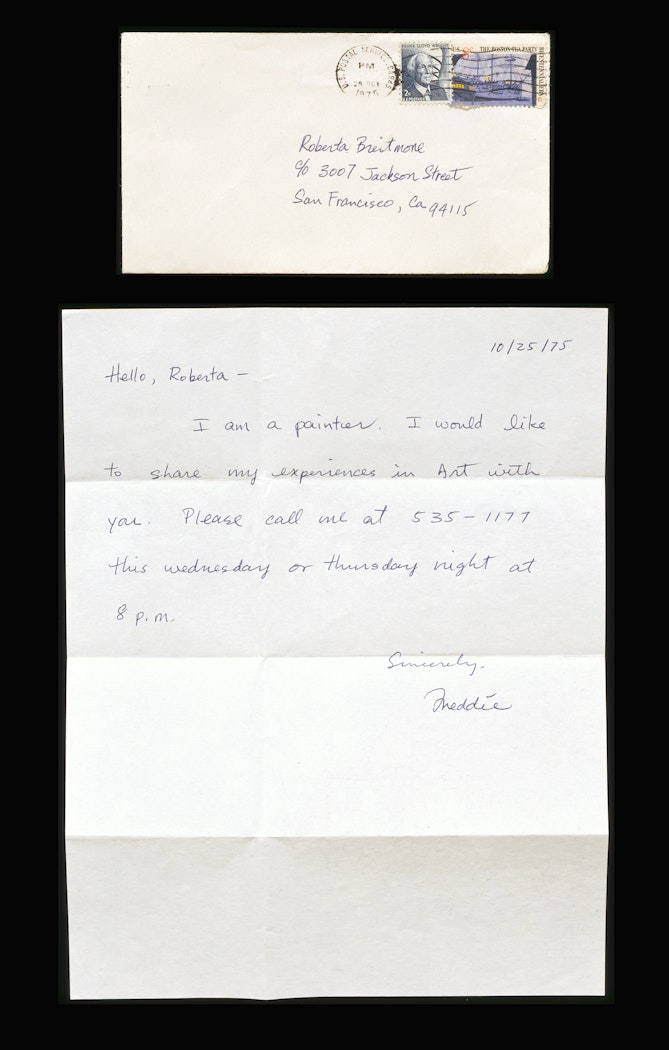 U.S. POSTAL SERVICE
PM
1975
FRANK LLOYD WRIGHT
2¢
U.S. 8c THE BOSTON TEA PARTY
BICENTENNIAL
Roberta Breitmore
c/o 3007 Jackson Street
San Francisco, Ca 94115
10/25/75
Hello, Roberta —
I am a painter. I would like
to share my experiences in Art with
you. Please call me at 535-1177
this wednesday or thursday night at
8 p.m.
Sincerely,
Freddie